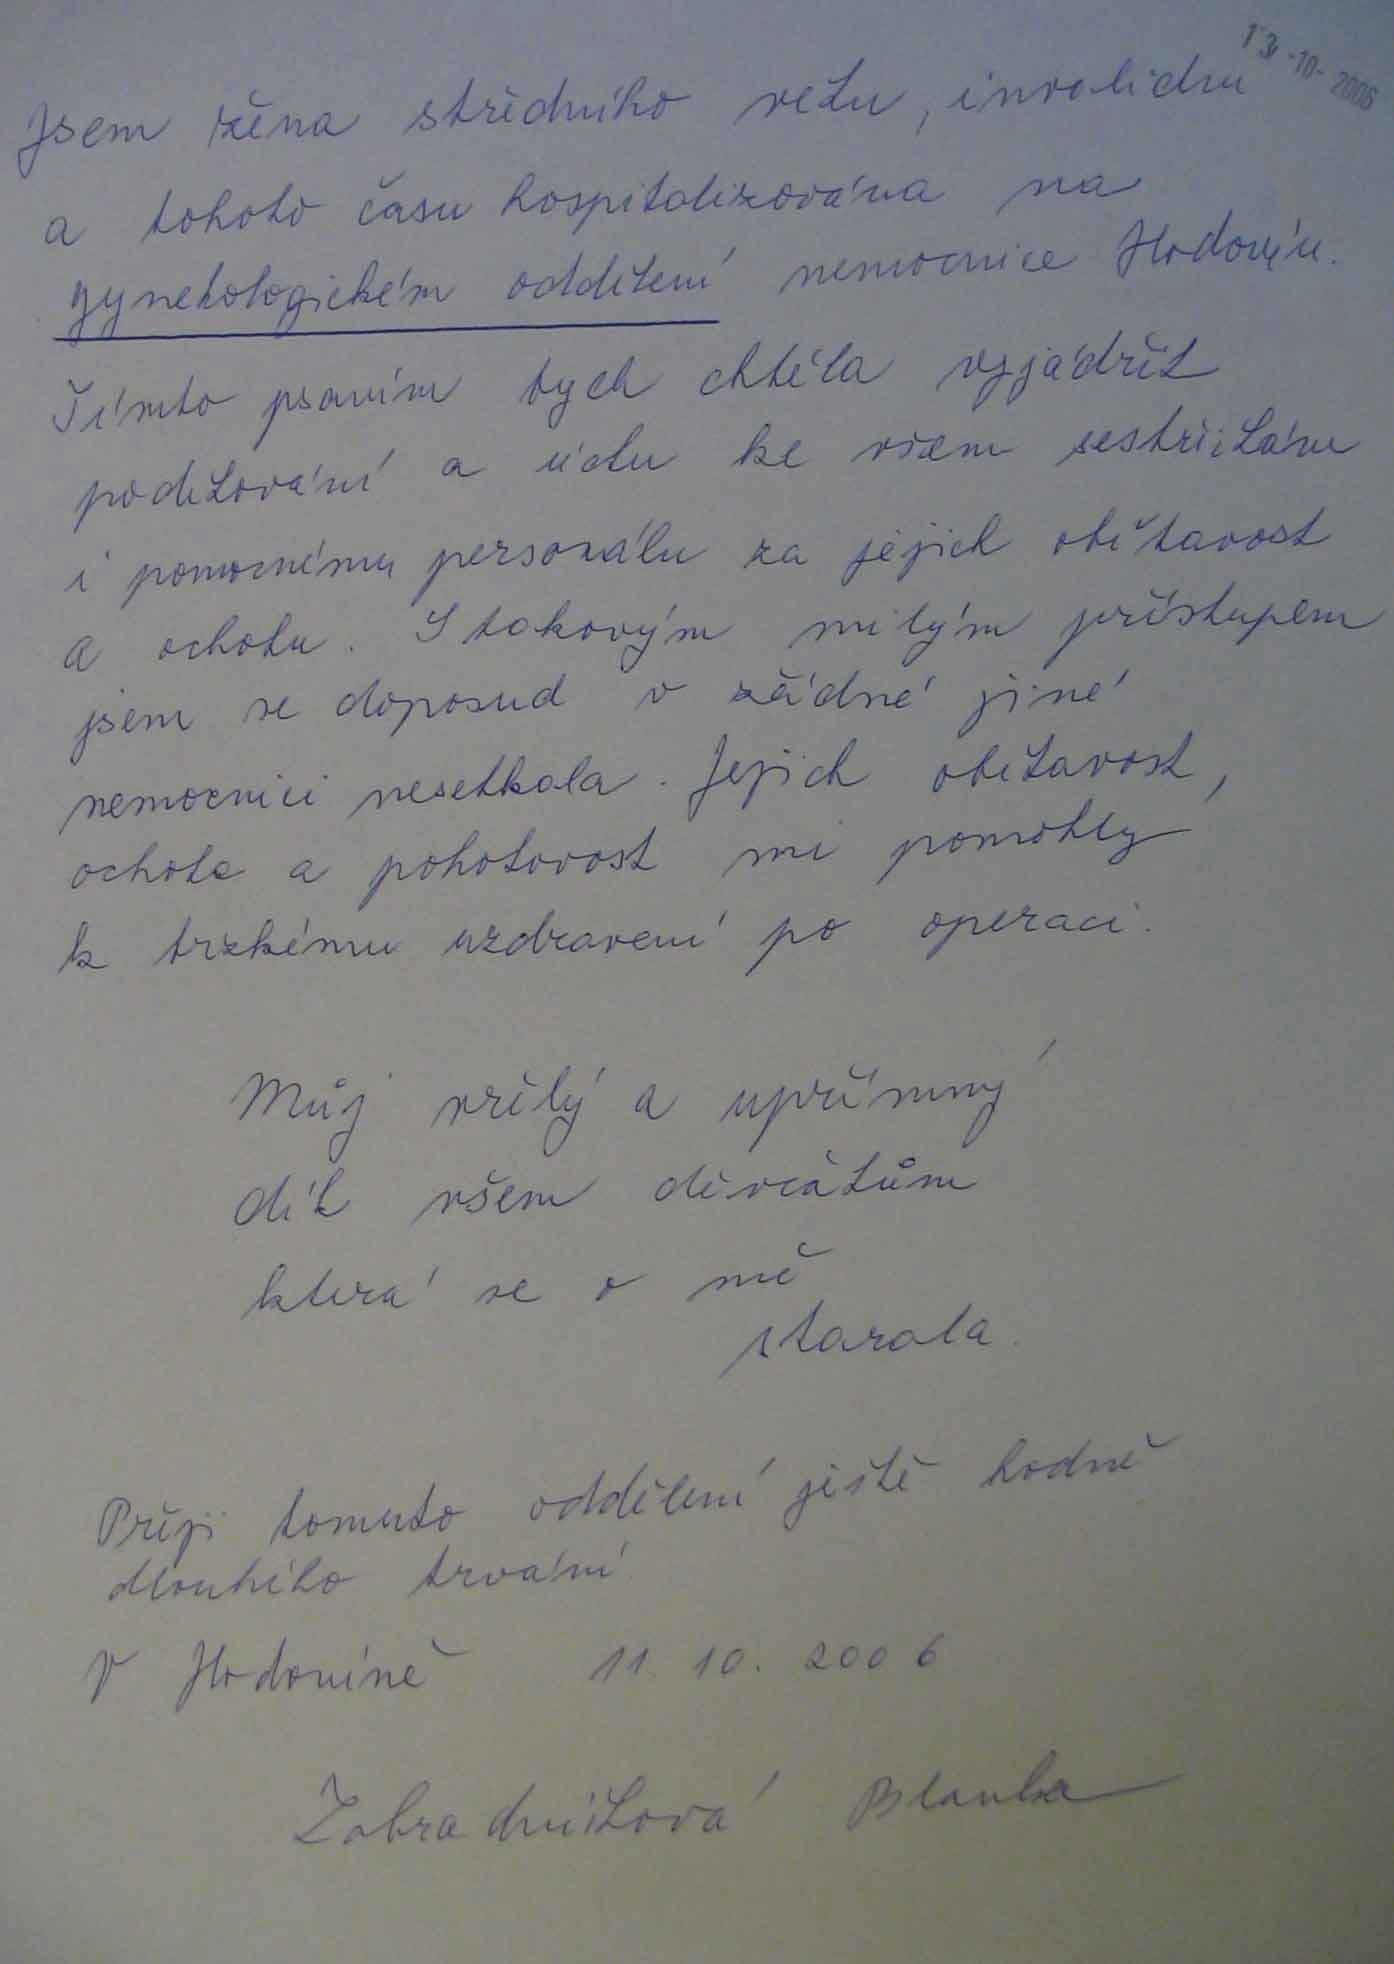 13 -10- 2006
Jsem žena středního věku, invalidní
a tohoto času hospitalizována na
gynekologickém oddělení nemocnice Hodonín.
Tímto psaním bych chtěla vyjádřit
poděkování a úctu ke všem sestřičkám
i pomocnému personálu za jejich obětavost
a ochotu. S takovým milým přístupem
jsem se doposud v žádné jiné
nemocnici nesetkala. Jejich obětavost,
ochota a pohotovost mi pomohly
k brzkému uzdravení po operaci.
Můj vřelý a upřímný
dík všem děvčatům
která se o mě
starala.
Přeji tomuto oddělení ještě hodně
dlouhého trvání
V Hodoníně 11. 10. 2006
Zahradníková Blanka